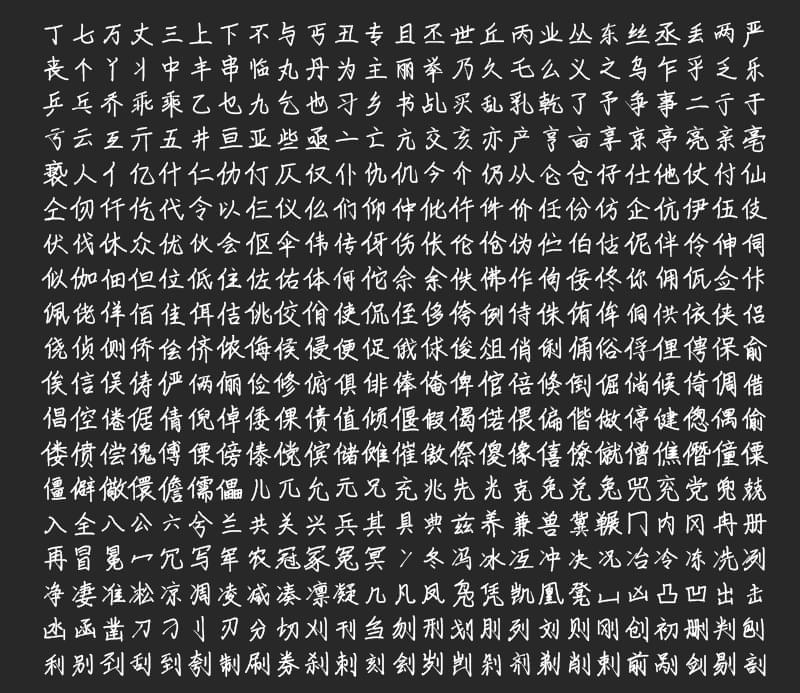 丁七万丈三上下不与丐丑专且丕世丘丙业丛东丝丞丢两严
丧个丫丬中丰串临丸丹为主丽举乃久乇么义之乌乍乎乏乐
乒乓乔乖乘乙乜九乞也习乡书乩买乱乳乾了予争事二亍于
亏云亙亓五井亘亚些亟亠亡亢交亥亦产亨亩享京亭亮亲亳
亵人亻亿什仁仂仃仄仅仆仇仉今介仍从仑仓仔仕他仗付仙
仝仞仟仡代令以仨仪仫们仰仲仳仵件价任份仿企伉伊伍伎
伏伐休众优伙会伛伞伟传伢伤伥伦伧伪伫伯估伲伴伶伸伺
似伽佃但位低住佐佑体何佗佘余佚佛作佝佞佟你佣佤佥佧
佩佬佯佰佳佴佶佻佼佾使侃侄侈侉例侍侏侑侔侗供依侠侣
侥侦侧侨侩侪侬侮侯侵便促俄俅俊俎俏俐俑俗俘俚俜保俞
俟信俣俦俨俩俪俭修俯俱俳俸俺俾倌倍倏倒倔倘候倚倜借
倡倥倦倨倩倪倬倭倮债值倾偃假偈偌偎偏偕做停健偬偶偷
偻偾偿傀傅傈傍傣傥傧储傩催傲傺傻像僖僚僦僧僬僭僮僳
僵僻儆儇儋儒儡儿兀允元兄充兆先光克免兑兔兕兖党兜兢
入全八公六兮兰共关兴兵其具典兹养兼兽冀冁冂内冈冉册
再冒冕冖冗写军农冠冢冤冥冫冬冯冰冱冲决况冶冷冻冼冽
净凄准凇凉凋凌减凑凛凝几凡凤凫凭凯凰凳凵凶凸凹出击
凼函凿刀刁刂刃分切刈刊刍刎刑划刖列刘则刚创初删判刨
利别刭刮到刳制刷券刹刺刻刽刿剀剁剂剃削剌前剐剑剔剖